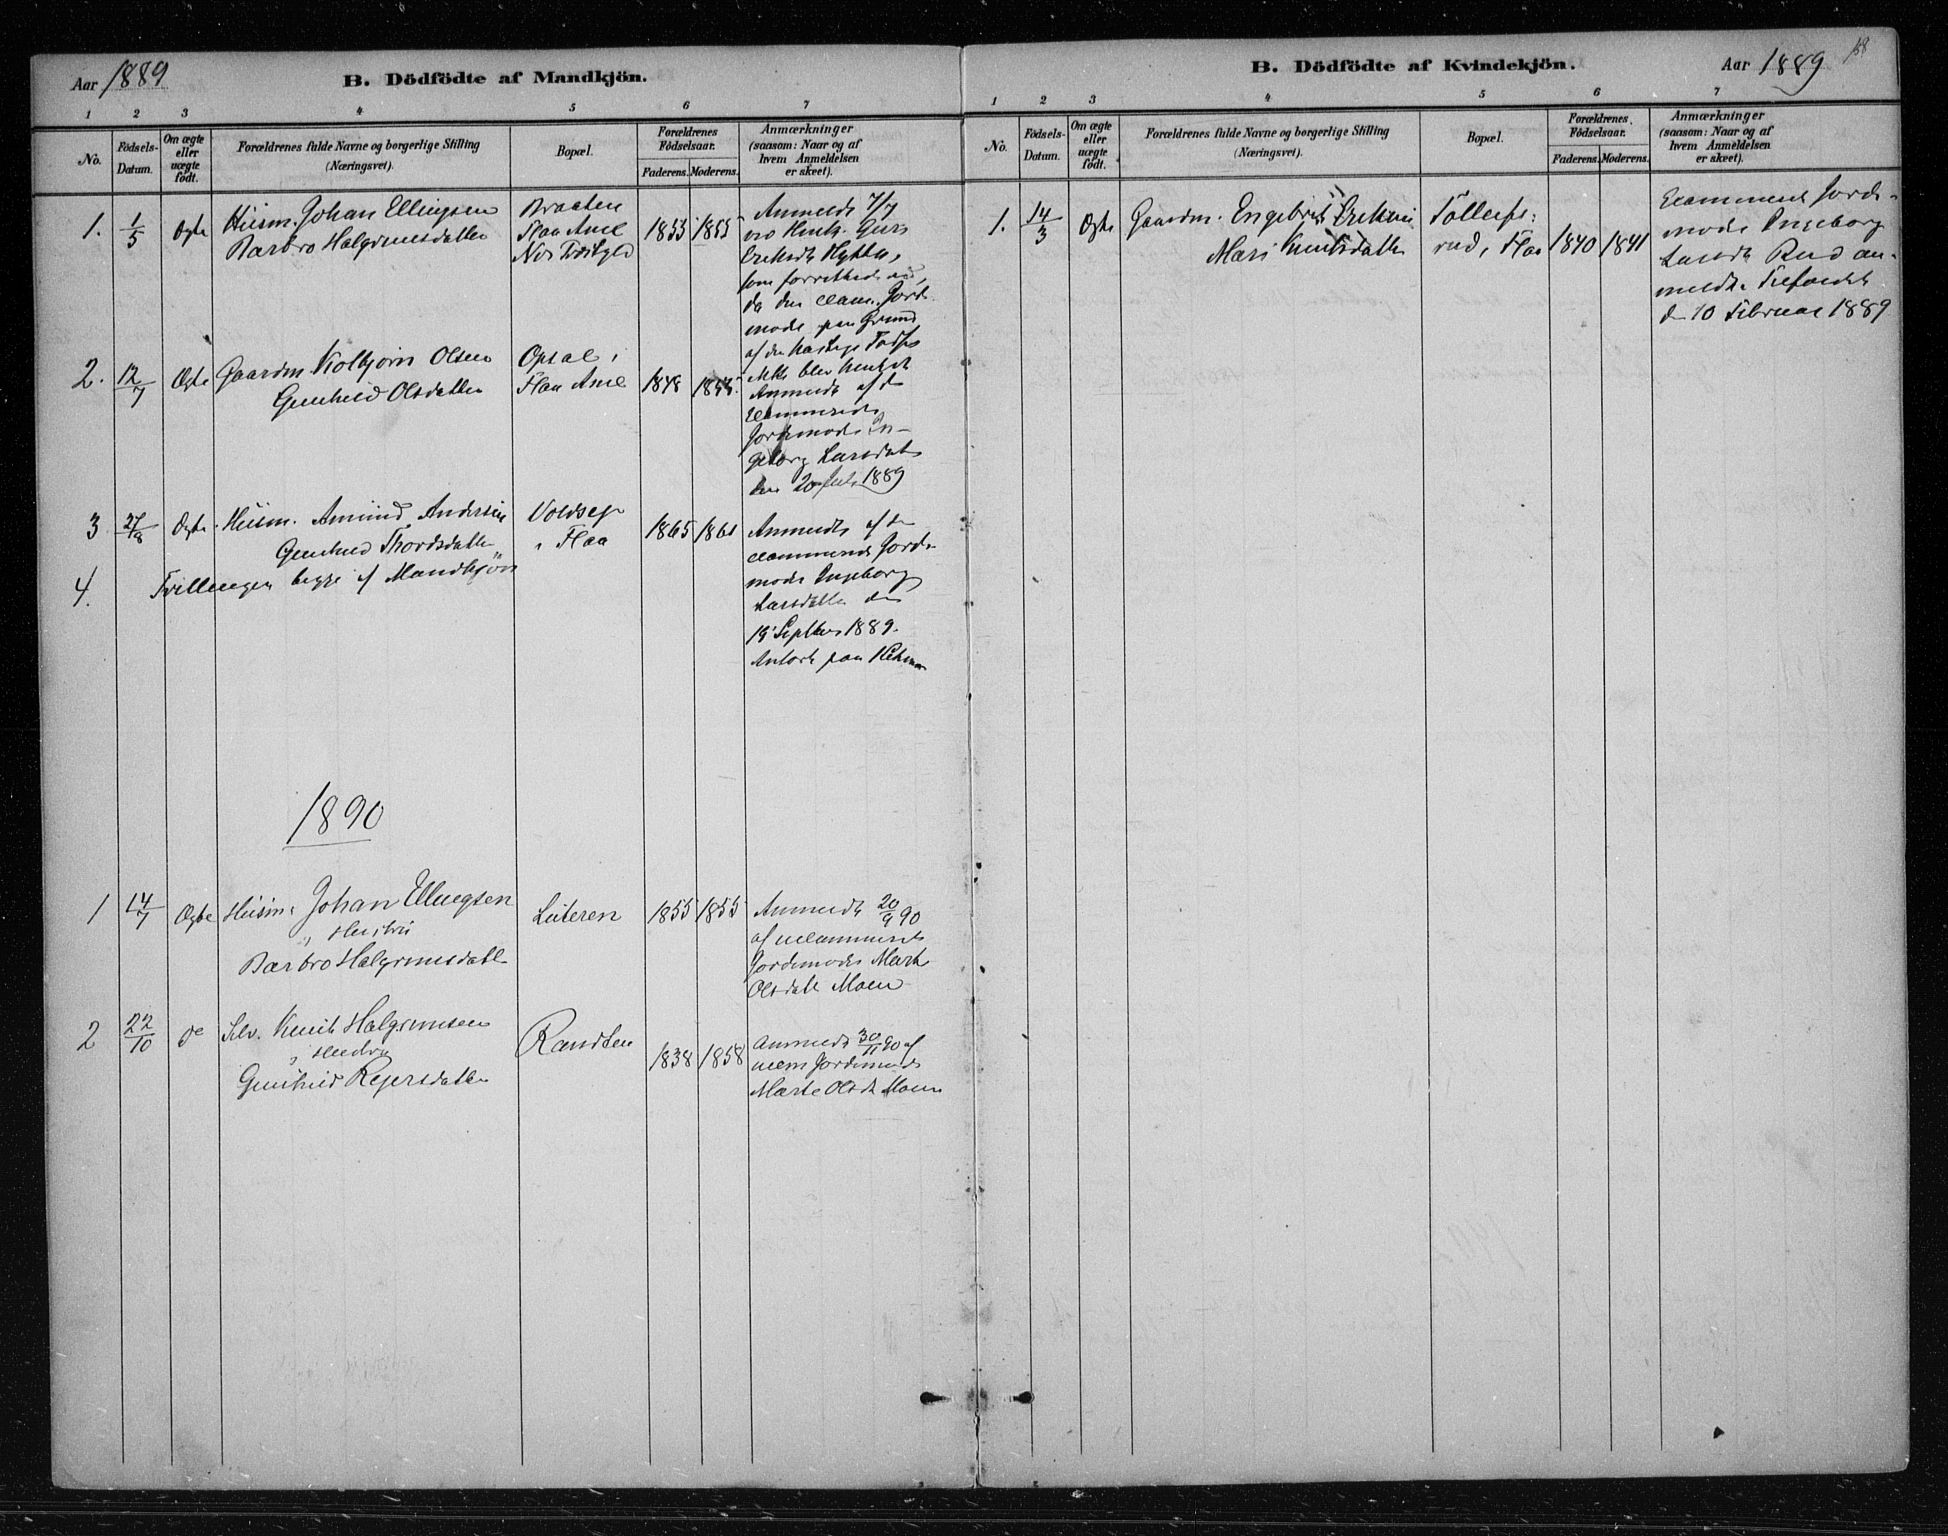 Aar 1889
B. Dödfödte af Mandkjön.
1 2 3 4 5 6 7
No.
Födsels-
Datum.
Om ægte
eller
uægte
födt.
Forældrenes fulde Navne og borgerlige Stilling
(Næringsvei).
Bopæl.
Forældrenes
Födselsaar.
Faderens. Moderens.
Anmærkninger
(saasom: Naar og af
hvem Anmeldelsen
er skeet).
1. 1/5 Ægte Husm. Johan Ellingsen
Barbro Halgrimsdatter
Braaten
Flaa Anx
1855 1855
Anmeldt 7/7
ved Gurs
Eriksdt Hytten,
som forrettede
da den exam. Jord
moder paa Grund
af den hastige Fødsel
2. 12/7 Ægte Gaardm. Kolbjørn Olsen
Gunhild Olsdatter
Opsal i
Flaa Anx
1848 1845
Anmeldt af den
examinerede
Jordemoder In-
geborg Larsdatt
den 20 Juli 1889
3. 27/8 Ægte Husm. Amund Andersen
Gunhild Thordsdatter
4. Tvillinger begge af Mandkjøn
Voldseje
i Flaa
1865 1861
Anmeldt af den
examinerede Jorde
moder Ingeborg
Larsdatter den
19 Septbr 1889.
1890
1 14/7 Ægte Husm. Johan Ellingsen
og Hustru
Barbro Halgrimsdatter
Luteren
1855 1855
Anmeldt 20/9 90
af uexamineret
Jordemoder Marte
Olsdatt Moen
2 22/10 do Selv. Knut Halgrimsen
og Hustru
Gunhild Rejersdatter
Randten
1838 1858
Anmeldt 30/11 90 af
uexm Jordemoder
Marte Olsdt Moen
B. Dödfödte af Kvindekjön.
Aar 1889
1 2 3 4 5 6 7
No.
Födsels-
Datum.
Om ægte
eller
uægte
födt.
Forældrenes fulde Navne og borgerlige Stilling
(Næringsvei).
Bopæl.
Forældrenes
Födselsaar.
Faderens. Moderens.
Anmærkninger
(saasom: Naar og af
hvem Anmeldelsen
er skeet).
1. 14/3 Ægte Gaardm. Engebret Eriksen
Mari Knutsdatter
Tollefs-
rud, Flaa
1840 1841
Examineret Jorde-
moder Ingeborg
Larsdt Rud an-
meldte Tilfældet
den 10 Februar 1889